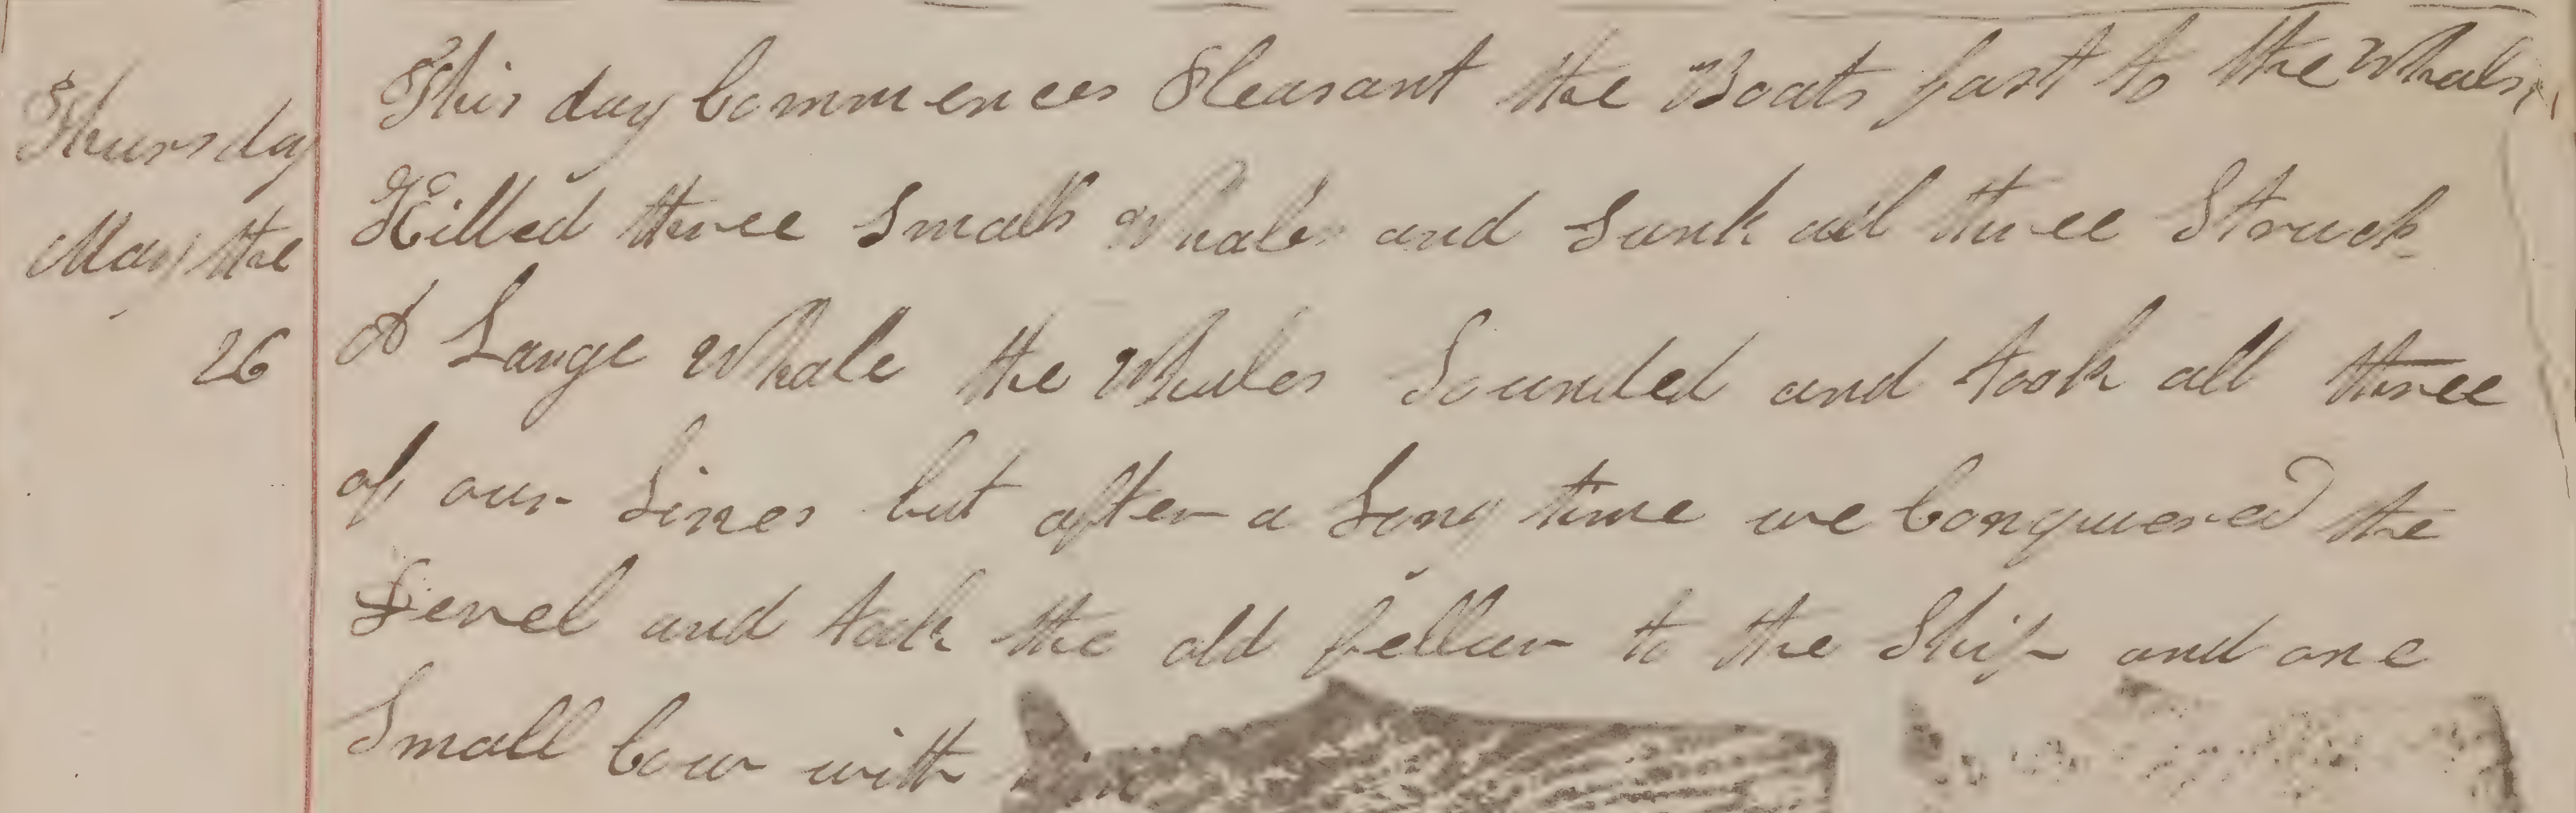 Thursday
May the
26
This day Commences Pleasant the Boats fast to the Whales
Killed three Small Whales and Sunk all three Struck
A Large Whale the Whales Sounded and took all three
of our Lines but after a Long time we Conquered the
Devel and took the old fellow to the Ship and one
Small Cow with him